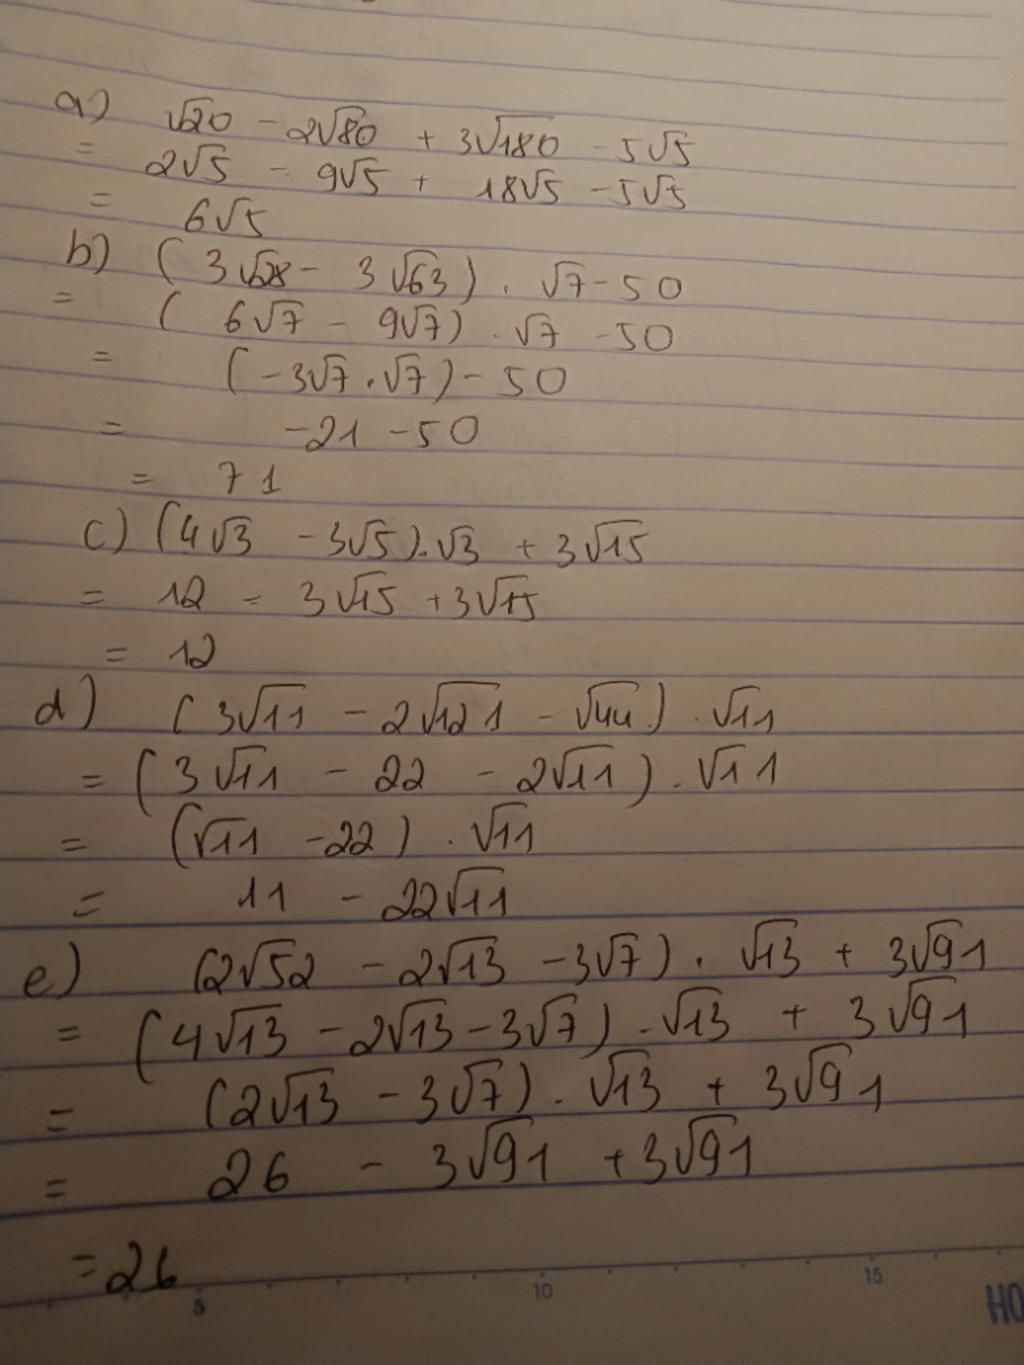 a) √20 - 2√80 + 3√180 - 5√5
= 2√5 - 9√5 + 18√5 - 5√5
= 6√5
b) (3√28 - 3√63) . √7 - 50
= (6√7 - 9√7) . √7 - 50
= (-3√7 . √7) - 50
= -21 - 50
= 71
c) (4√3 - 3√5) . √3 + 3√15
= 12 - 3√15 + 3√15
= 12
d) (3√11 - 2√121 - √44) . √11
= (3√11 - 22 - 2√11) . √11
= (√11 - 22) . √11
= 11 - 22√11
e) (2√52 - 2√13 - 3√7) . √13 + 3√91
= (4√13 - 2√13 - 3√7) . √13 + 3√91
= (2√13 - 3√7) . √13 + 3√91
= 26 - 3√91 + 3√91
= 26
5 10 15 HO